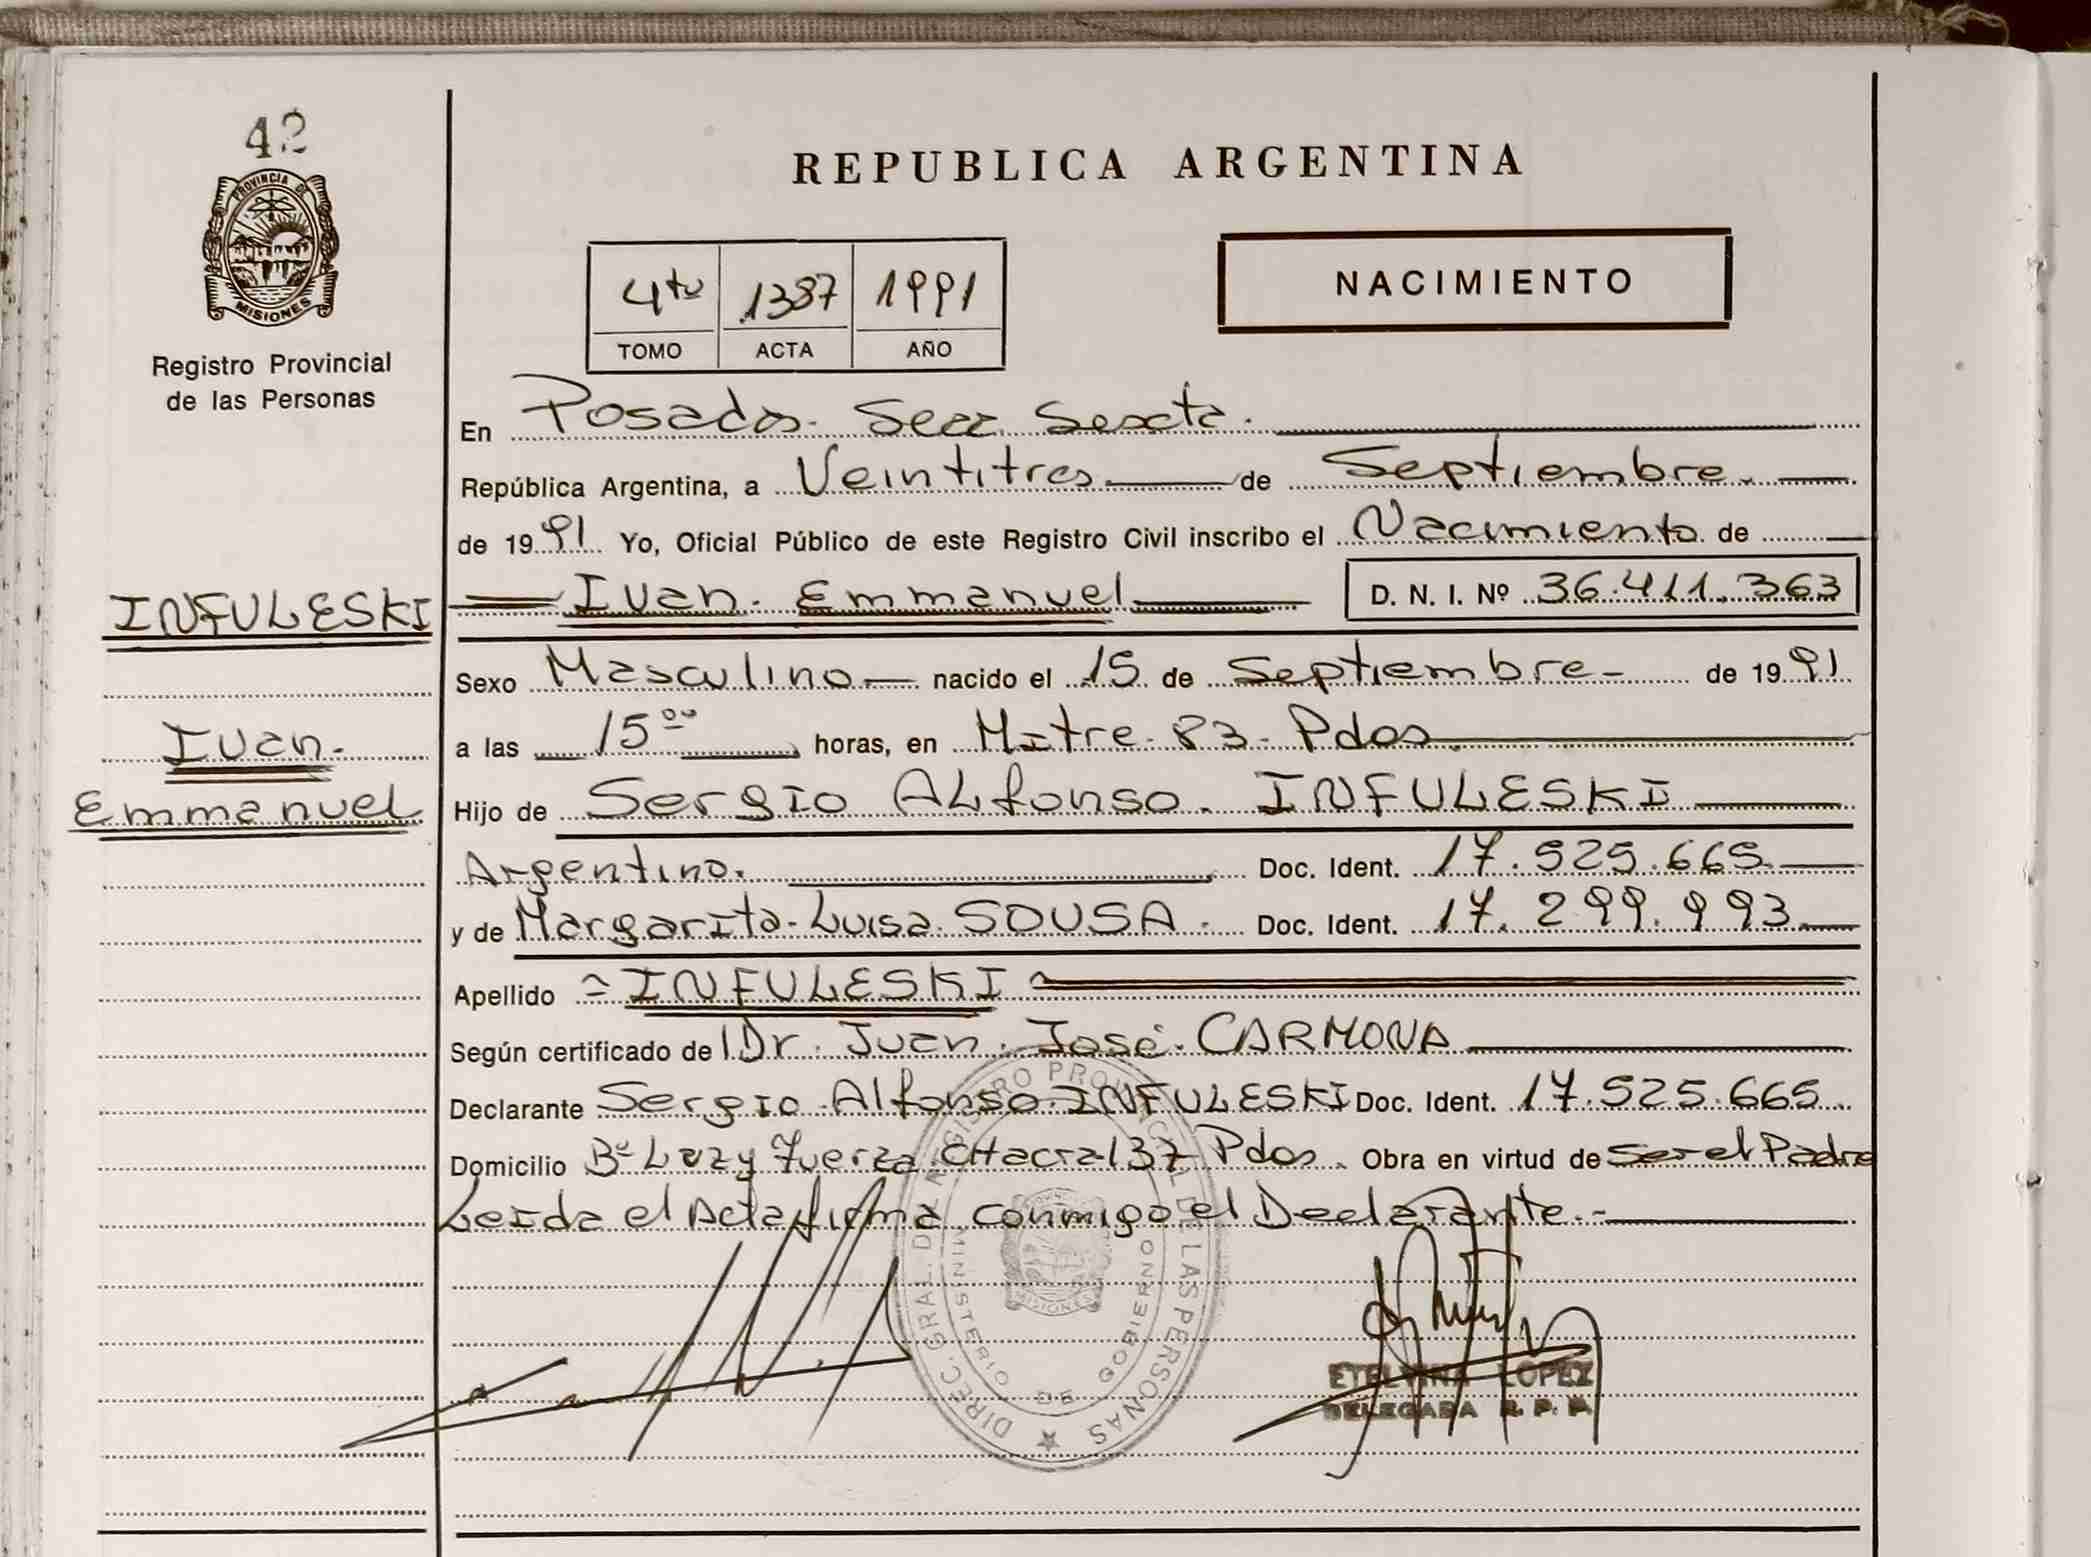 42
PROVINCIA DE
MISIONES
Registro Provincial
de las Personas
REPUBLICA ARGENTINA
4to 1387 1991
TOMO ACTA AÑO
NACIMIENTO
En Posadas. Secc. Sexta.
República Argentina, a Veintitres de Septiembre.
de 1991 Yo, Oficial Público de este Registro Civil inscribo el Nacimiento de
INFULESKI Ivan. Emmanuel D. N. I. Nº 36.411.363
Sexo Masculino nacido el 15 de Septiembre de 1991
Ivan. a las 15 00 horas, en Mitre. 83. Pdas.
Emmanuel Hijo de Sergio Alfonso. INFULESKI
Argentino. Doc. Ident. 17.525.665
y de Margarita. Luisa. SOUSA. Doc. Ident. 17.299.993
Apellido = INFULESKI
Según certificado de Dr. Juan. José. CARMONA
Declarante Sergio Alfonso INFULESKI Doc. Ident. 17.525.665
Domicilio Bº Luz y Fuerza. CHacra 137 Pdas. Obra en virtud de ser el Padre
Leida el Acta firma conmigo el Declarante.-
DIREC. GRAL. DEL REGISTRO PROVINCIAL DE LAS PERSONAS
MINISTERIO DE GOBIERNO
MISIONES
ETELVINA LOPEZ
DELEGADA R. P. P.